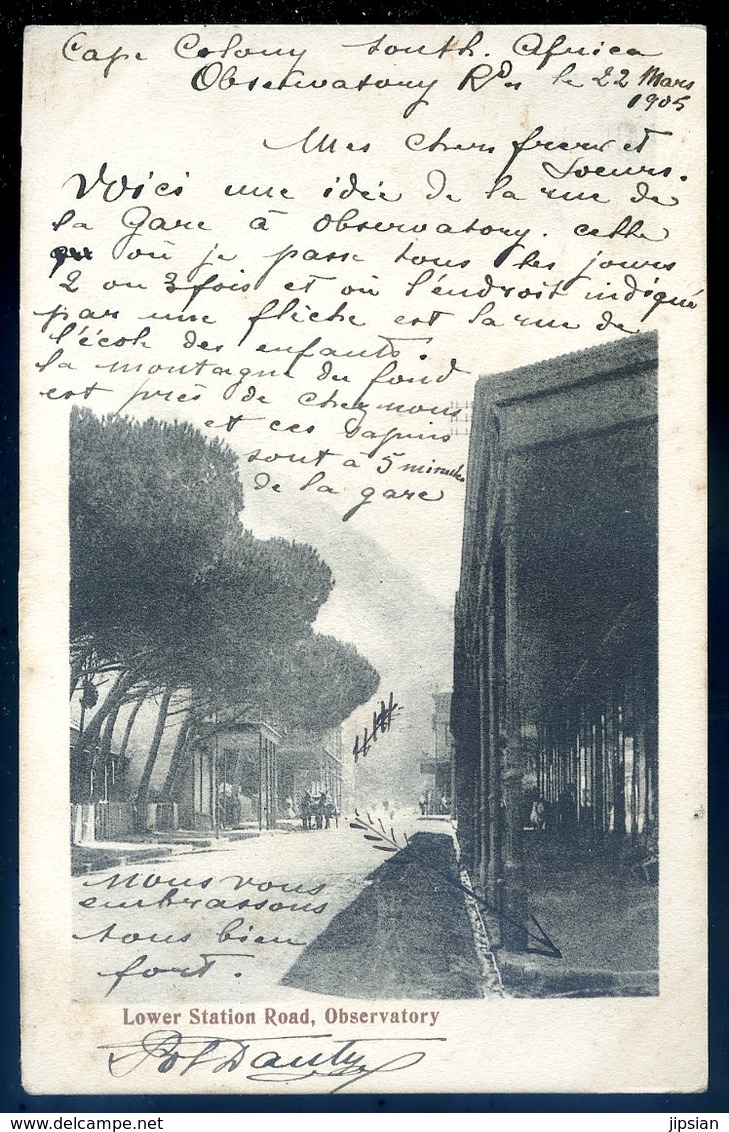 Cape Colony South. Africa
Observatory Rd. le 22 Mars
1905
Mes chers freres et
Soeurs.
Voici une idée de la rue de
la Gare à Observatory. cette
où je passe tous les jours
2 ou 3 fois et où l'endroit indiqué
par une flèche est la rue de
l'école des enfants.
la montagne du fond
est près de chez nous
et ces sapins
sont à 5 minutes
de la gare
Nous vous
embrassons
tous bien
fort.
Lower Station Road, Observatory
jipsian